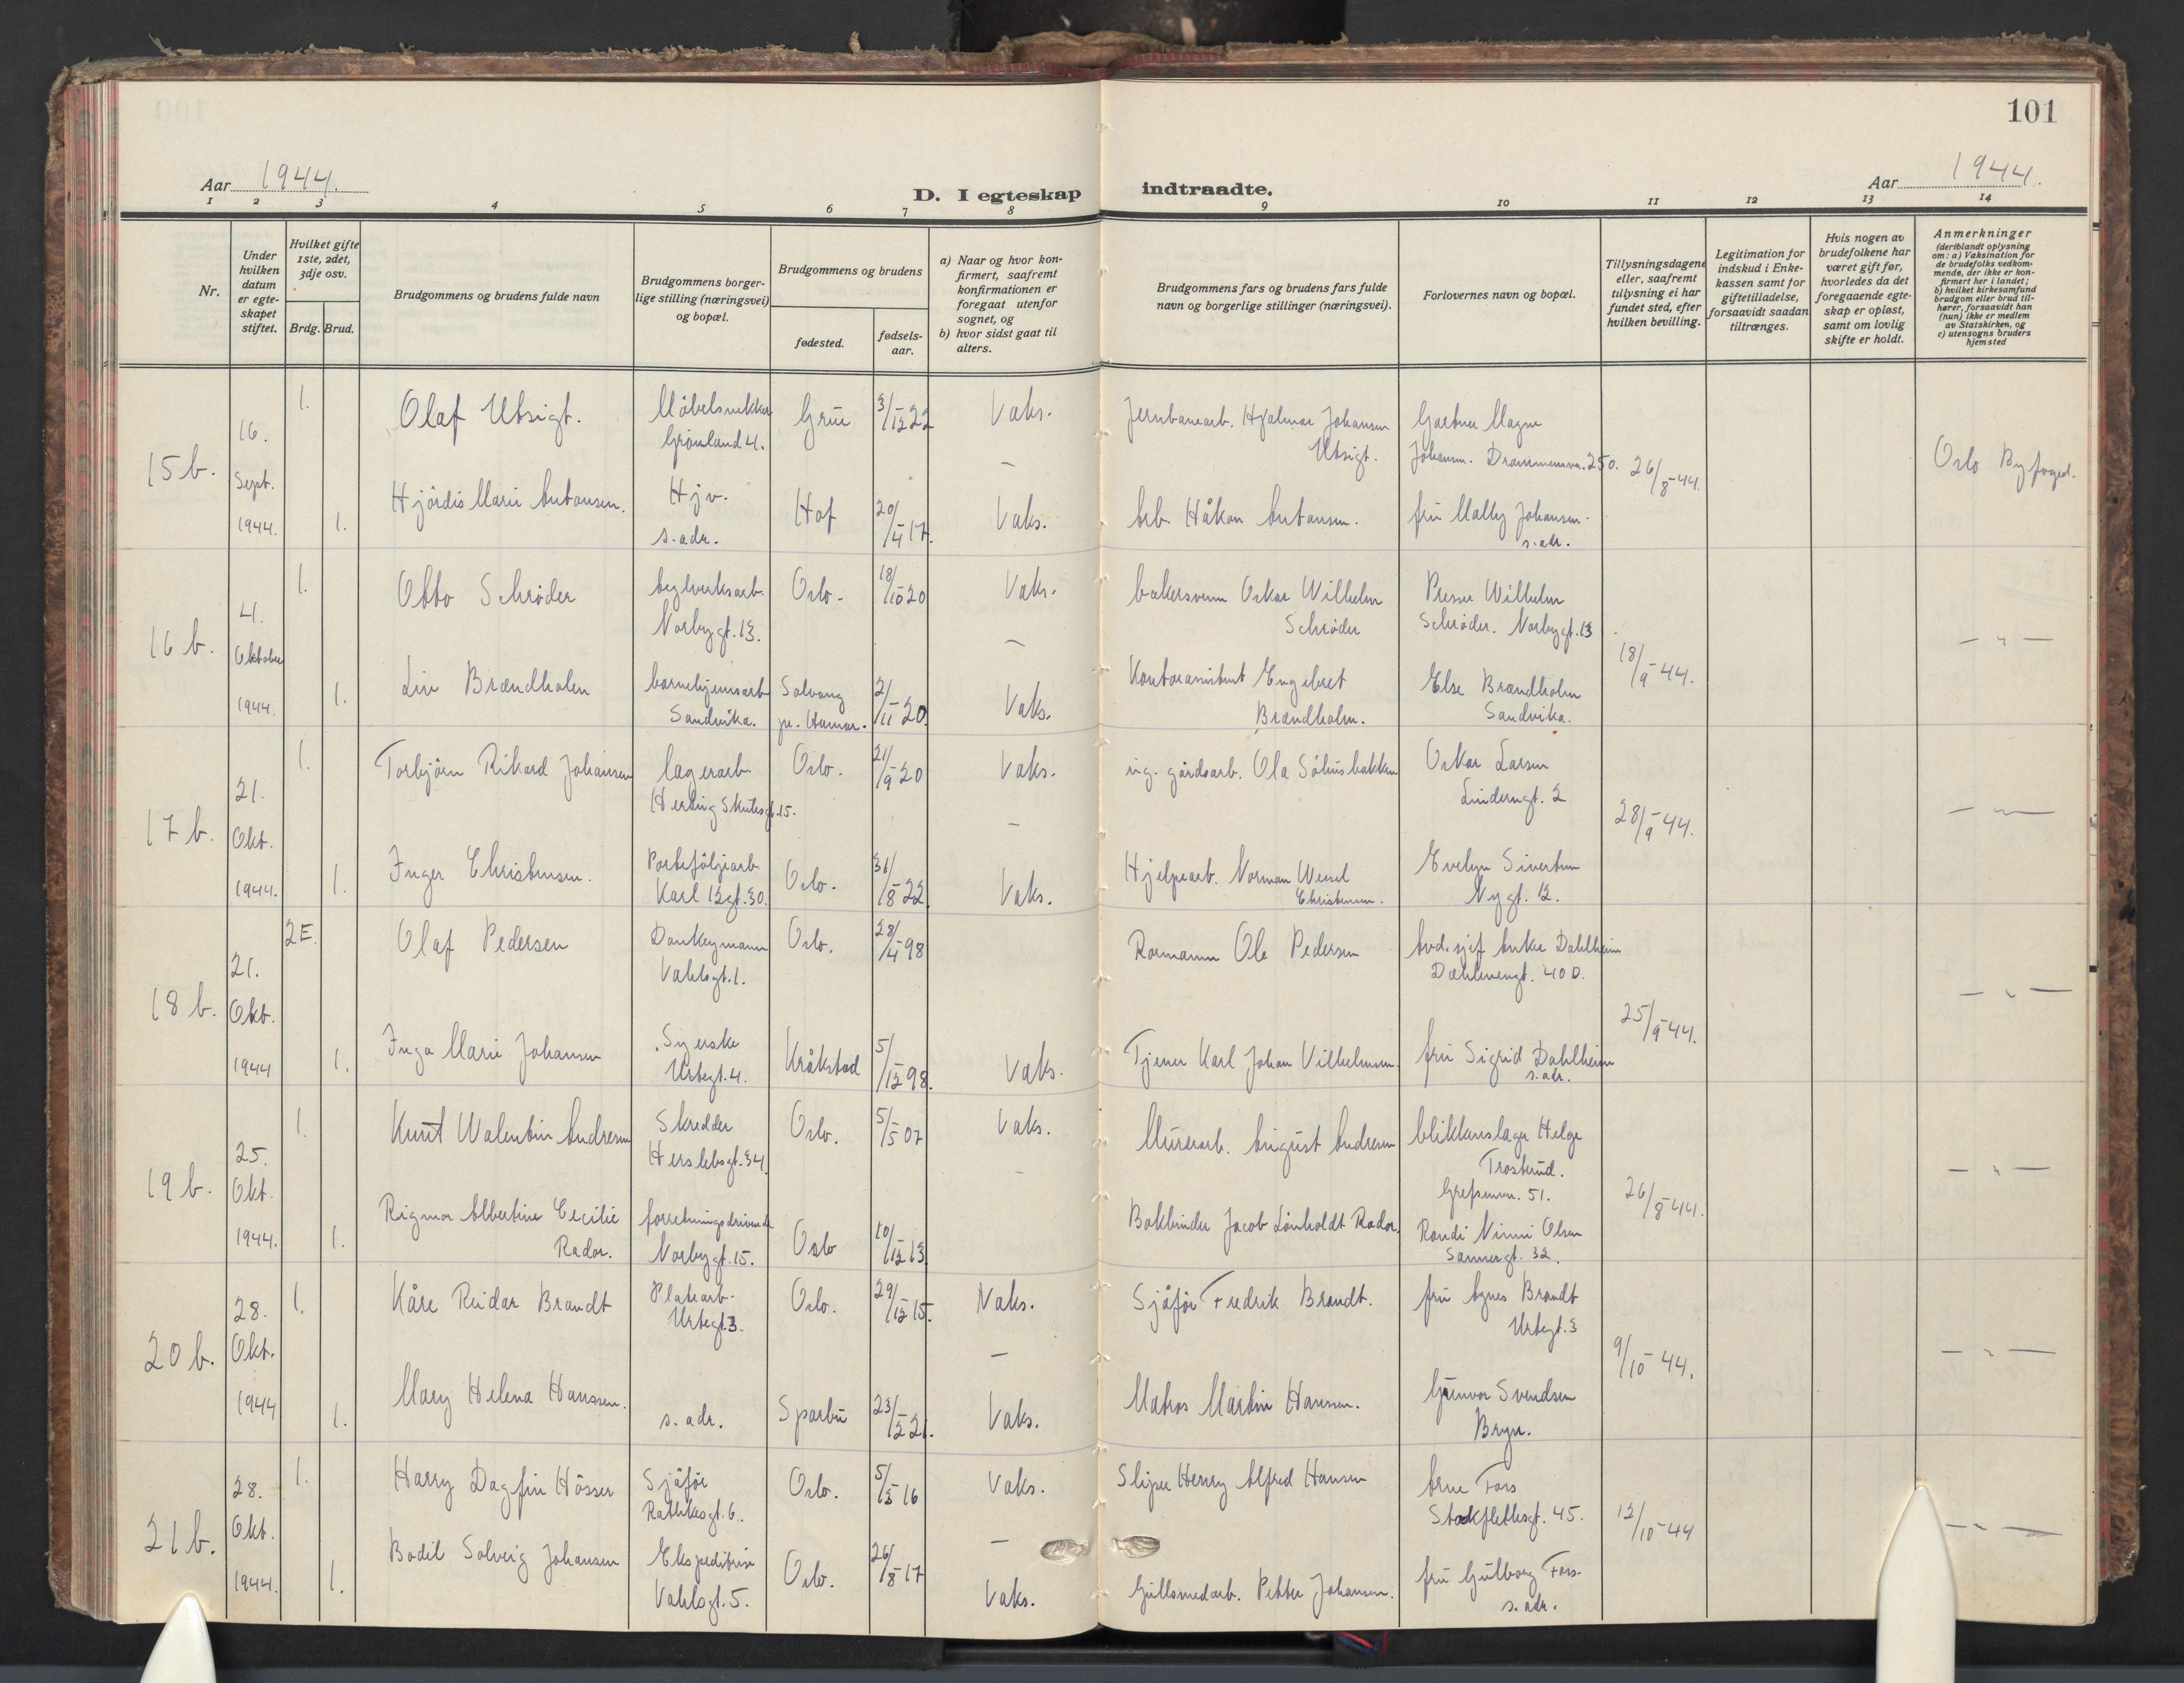 101
Aar 1944.
D. I egteskap indtraadte.
Aar 1944.
1 2 3 4 5 6 7 8 9 10 11 12 13 14
Nr.
Under hvilken datum er egteskapet stiftet.
Hvilket gifte 1ste, 2det, 3dje osv.
Brdg. Brud.
Brudgommens og brudens fulde navn
Brudgommens borgerlige stilling (næringsvei) og bopæl.
Brudgommens og brudens
fødested.
fødselsaar.
a) Naar og hvor konfirmert, saafremt konfirmationen er foregaat utenfor sognet, og
b) hvor sidst gaat til alters.
Brudgommens fars og brudens fars fulde navn og borgerlige stillinger (næringsvei).
Forlovernes navn og bopæl.
Tillysningsdagene eller, saafremt tillysning ei har fundet sted, efter hvilken bevilling.
Legitimation for indskud i Enkekassen samt for giftetilladelse, forsaavidt saadan tiltrænges.
Hvis nogen av brudefolkene har været gift før, hvorledes da det foregaaende egteskap er opløst, samt om lovlig skifte er holdt.
Anmerkninger
(deriblandt oplysning om: a) Vaksination for de brudefolks vedkommende, der ikke er konfirmert her i landet;
b) hvilket kirkesamfund brudgom eller brud tilhører, forsaavidt han (hun) ikke er medlem av Statskirken, og
c) utensogns bruders hjemsted
15 b. 16. Sept. 1944.
1. Olaf Utsigt. Møbelsnekker Grønland 4. Grue 3/12-22 Vaks. Jernbanearb. Hjalmar Johansen Utsigt. Gartner Magne Johansen. Drammensvn. 250. 26/8-44. Oslo Byfoged.
1. Hjördis Marie Antonsen. Hjv. s. adr. Hof 20/4-17. Vaks. Arb. Håkon Antonsen. fru Mally Johansen. s. adr.
16 b. 4. Oktober 1944.
1. Otto Schrøder teglverksarb. Norbygt. 13. Oslo. 18/10-20 Vaks. bakersvenn Oskar Wilhelm Schrøder Presser Wilhelm Schrøder. Norbygt. 13 18/9-44. — " —
1. Liv Brændholen barnehjemsarb Sandvika. Solvang pr. Hamar. 2/11-20. Vaks. Kontorassistent Engebret Brændholm. Else Brændholm Sandvika.
17 b. 21. Okt. 1944.
1. Torbjørn Rikard Johansen lagerarb. Hertug Skulesgt. 15. Oslo. 21/9-20 Vaks. gårdsarb. Ola Oskar Larsen Linderngt. 2 28/9-44. — " —
1. Inger Christensen. Porteföljearb Karl 12gt. 30. Oslo. 31/8-22. Vaks. Hjelpearb. Norman Wessel Christensen. Evelyn Sivertsen Nygt. 12.
18 b. 21. Okt. 1944
2E. Olaf Pedersen Donkeymann Vahlsgt. 1. Oslo. 28/4-98 Rormann Ole Pedersen Avd. sjef Anker Dahlheim Dælenengt. 40 D. 25/9-44. — " —
1. Inga Marie Johansen Syerske Urtegt. 4. Kråkstad 5/12-98. Vaks. Tjener Karl Johan Vilhelmsen. fru Sigrid Dahlheim s. adr.
19 b. 25. Okt. 1944.
1. Kurt Walentin Andresen Skredder Herslebsgt. 34. Oslo. 5/5-07 Vaks. Murerarb. August Andresen blikkenslager Helge Trosterud. Grefsenvn. 51. 26/8-44. — " —
1. Rigmor Albertine Cecilie Rador. forretningsdrivende Norbygt. 15. Oslo 10/12-13 Bokbinder Jacob Lönholdt Rador. Randi Ninni Olsen Sannergt. 32.
20 b. 28. Okt. 1944
1. Kåre Reidar Brandt Platearb. Urtegt. 3. Oslo. 29/12-15. Vaks. Sjåför Fredrik Brandt. fru Agnes Brandt Urtegt. 3 9/10-44. — " —
1. Mary Helena Hanssen. s. adr. Sparbu 23/12-21. Vaks. Matros Martin Hanssen. Gunvor Svendsen Bryn.
21 b. 28. Okt. 1944.
1. Harry Dagfin Hösser Sjåför Rathkesgt. 6. Oslo. Vaks. Sliper Henry Alfred Hansen Arne Fors Stockflethsgt. 45. 12/10-44 — " —
1. Bodil Solveig Johansen Ekspeditrise Vahlsgt. 5. Oslo. 26/8-17 Vaks. Gullsmedarb. Petter Johansen. fru Gulborg Fors. s. adr.